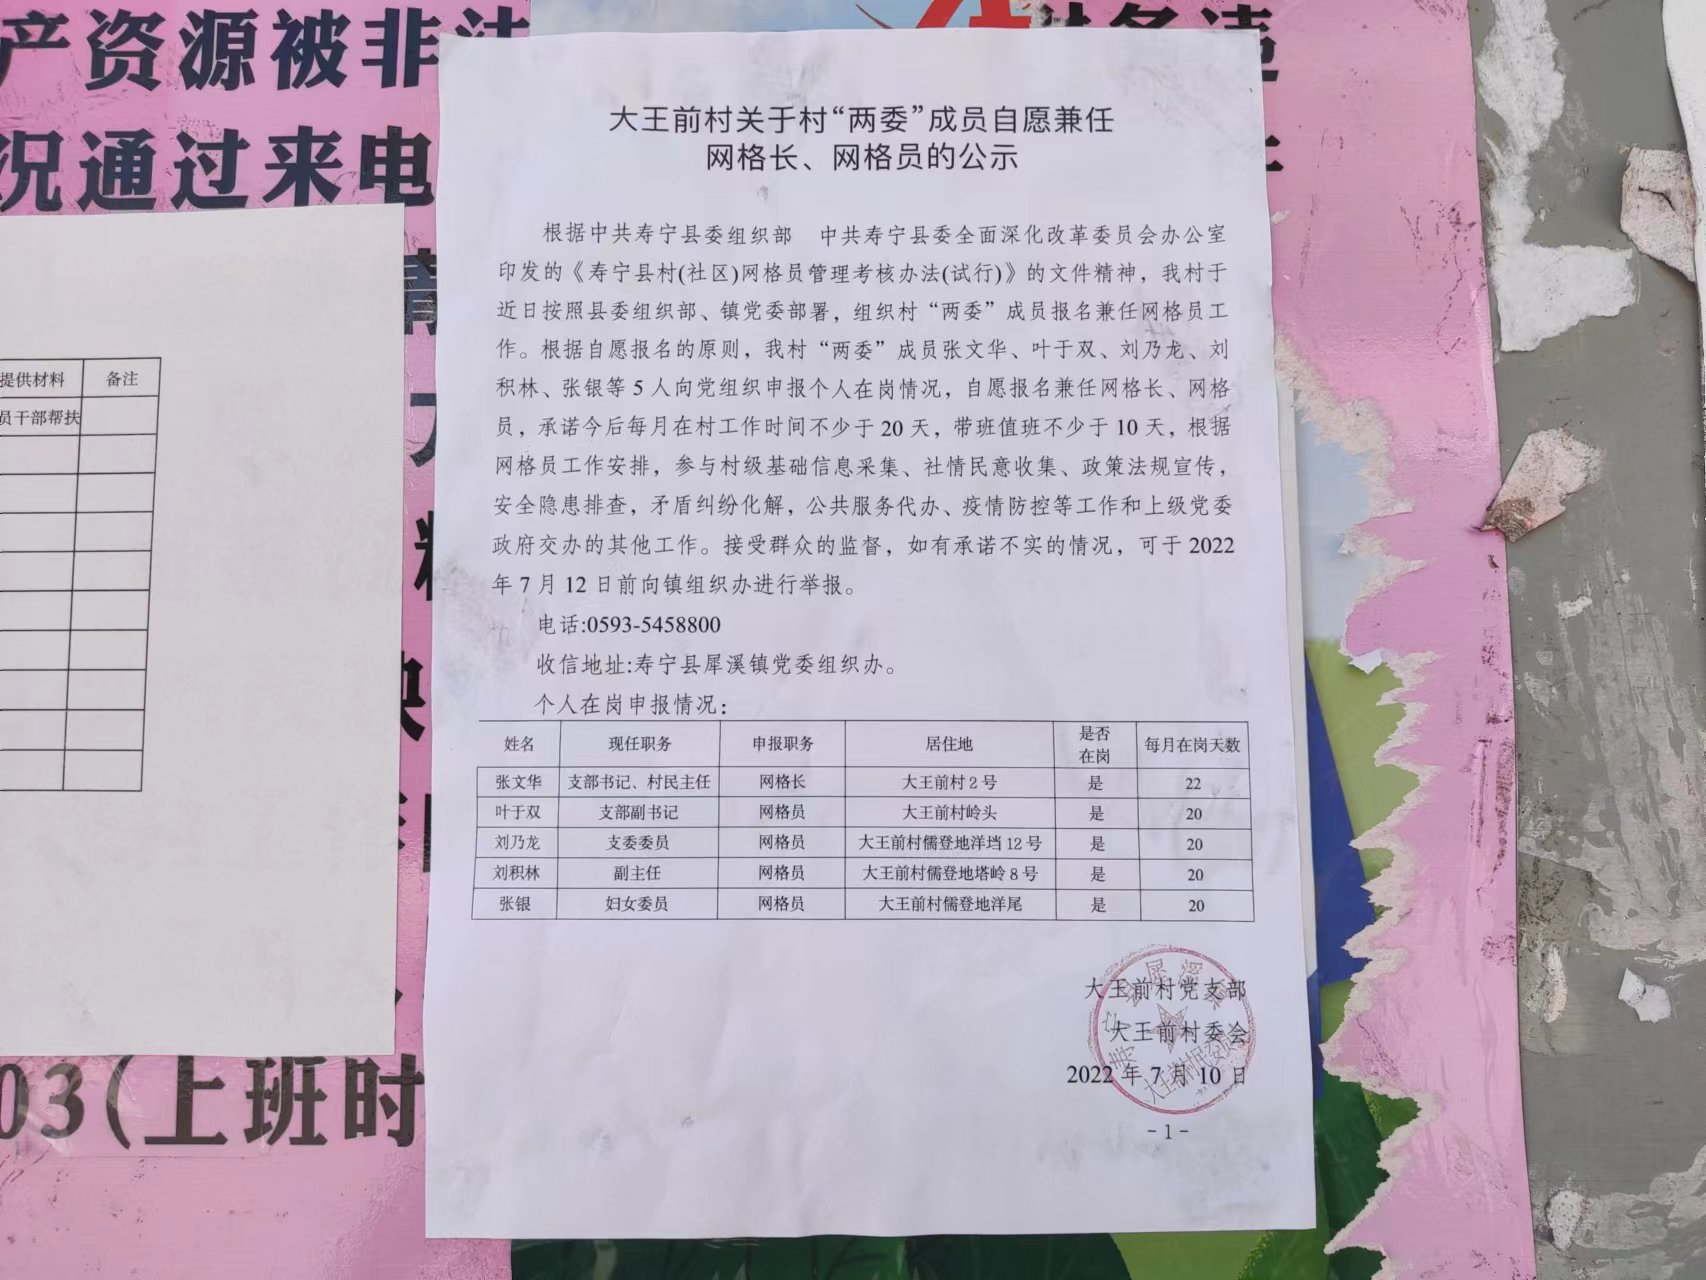 产资源被非法
况通过来电
提供材料 备注
员干部帮扶
03(上班时
大王前村关于村“两委”成员自愿兼任
网格长、网格员的公示
根据中共寿宁县委组织部 中共寿宁县委全面深化改革委员会办公室
印发的《寿宁县村(社区)网格员管理考核办法(试行)》的文件精神，我村于
近日按照县委组织部、镇党委部署，组织村“两委”成员报名兼任网格员工
作。根据自愿报名的原则，我村“两委”成员张文华、叶于双、刘乃龙、刘
积林、张银等 5 人向党组织申报个人在岗情况，自愿报名兼任网格长、网格
员，承诺今后每月在村工作时间不少于 20 天，带班值班不少于 10 天，根据
网格员工作安排，参与村级基础信息采集、社情民意收集、政策法规宣传，
安全隐患排查，矛盾纠纷化解，公共服务代办、疫情防控等工作和上级党委
政府交办的其他工作。接受群众的监督，如有承诺不实的情况，可于 2022
年 7 月 12 日前向镇组织办进行举报。
电话:0593-5458800
收信地址:寿宁县犀溪镇党委组织办。
个人在岗申报情况：
姓名 现任职务 申报职务 居住地 是否在岗 每月在岗天数
张文华 支部书记、村民主任 网格长 大王前村 2 号 是 22
叶于双 支部副书记 网格员 大王前村岭头 是 20
刘乃龙 支委委员 网格员 大王前村儒登地洋垱 12 号 是 20
刘积林 副主任 网格员 大王前村儒登地塔岭 8 号 是 20
张银 妇女委员 网格员 大王前村儒登地洋尾 是 20
大王前村党支部
大王前村委会
2022 年 7 月 10 日
- 1 -